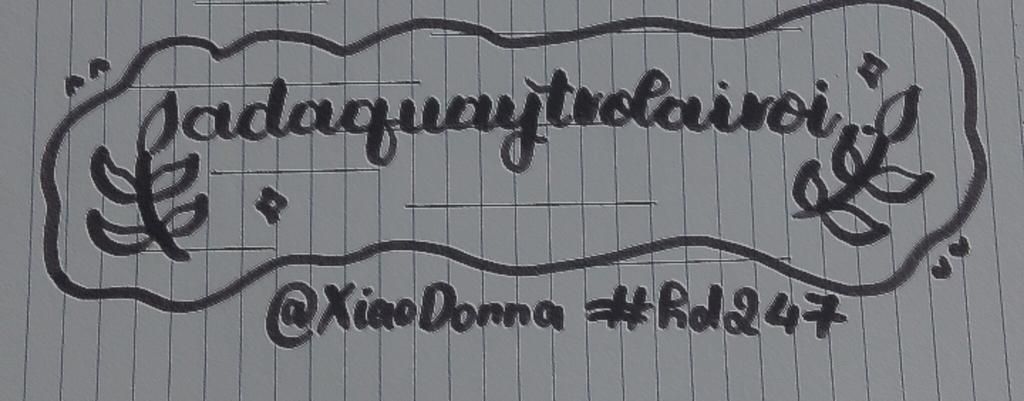 adaquaytrolairoi,.
@XiaoDonna #hd247